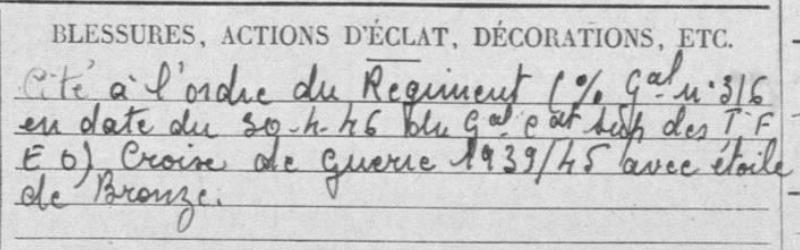 BLESSURES, ACTIONS D'ÉCLAT, DÉCORATIONS, ETC.
Cité à l'ordre du Régiment (% Gal n° 316
en date du 30-4-46 du Gal Ct Sup des T F
E O) Croix de guerre 1939/45 avec étoile
de Bronze.